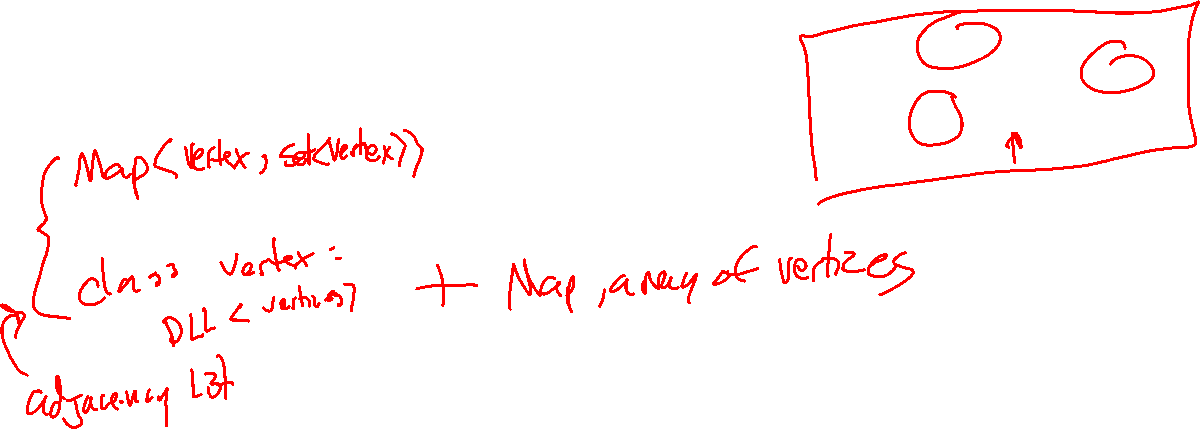 Map<vertex, set<vertex>>
class vertex:
DLL<vertices>
+ Map, array of vertices
adjacency list